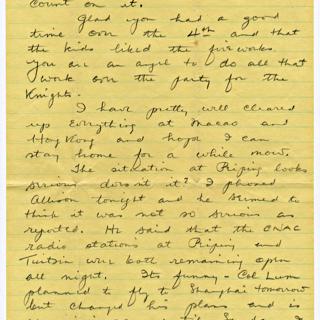 count on it.
Glad you had a good
time over the 4th and that
the kids liked the fireworks.
You are an angel to do all that
work over the party for the
Knights.
I have pretty well cleared
up everything at Macao and
Hong Kong and hope I can
stay home for a while now.
The situation at Peiping looks
serious doesn't it? I phoned
Allison tonight and he seemed to
think it was not so serious as
reported. He said that the CNAC
radio stations at Peiping and
Tientsin were both remaining open
all night. Its funny - Col Lum
planned to fly to Shanghai tomorrow
but changed his plans and is